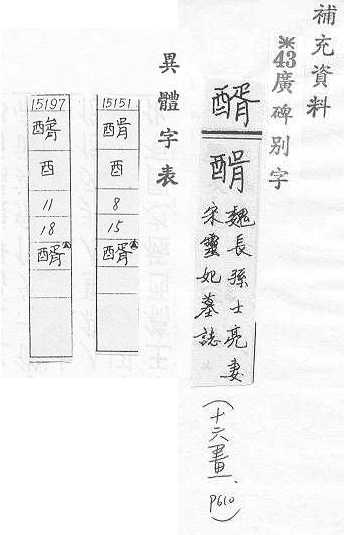 補充資料
※43廣碑別字
醑
魏長孫士亮妻
宋靈妃墓誌
(十六畫、P610)
異體字表
15151
酉
8
15
醑
15197
酉
11
18
醑